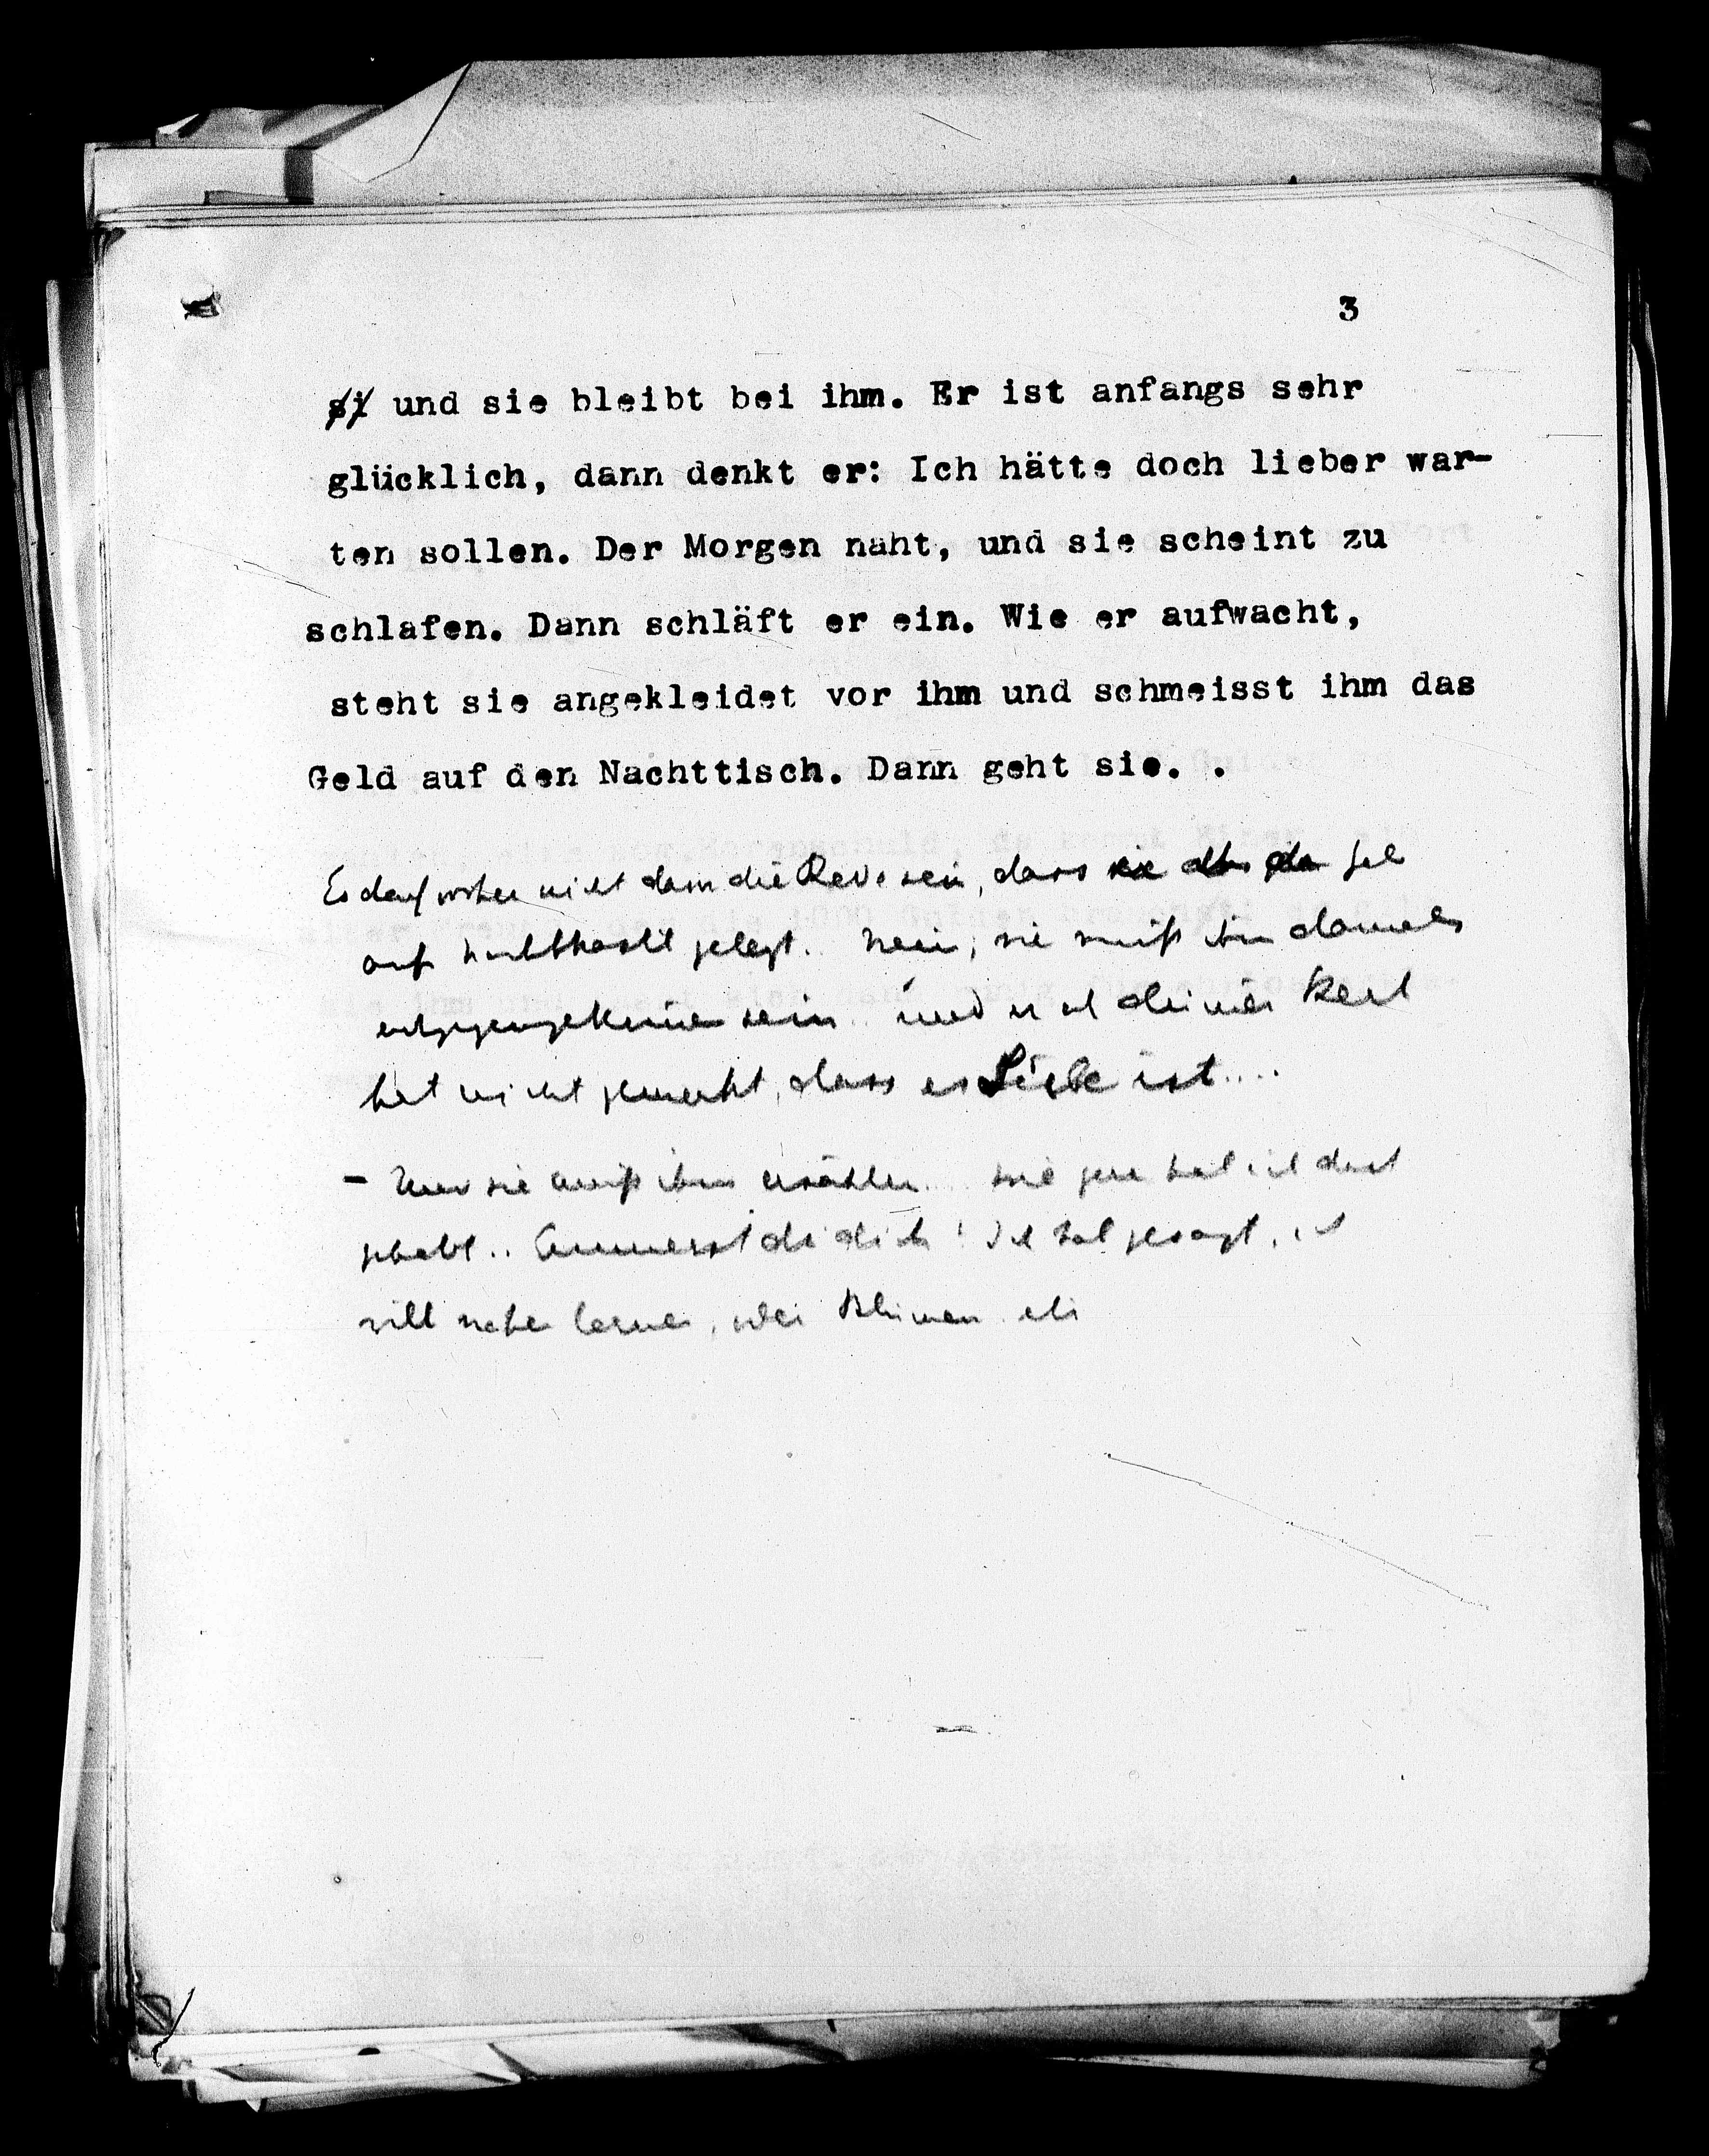 3
si und sie bleibt bei ihm. Er ist anfangs sehr
glücklich, dann denkt er: Ich hätte doch lieber war-
ten sollen. Der Morgen naht, und sie scheint zu
schlafen. Dann schläft er ein. Wie er aufwacht,
steht sie angekleidet vor ihm und schmeisst ihm das
Geld auf den Nachttisch. Dann geht sie. .
Es darf vorher nicht davon die Rede sein, dass
auf gelegt. Nein, sie muß ihm damals
entgegengekommen sein. und er Kerl
hat nicht gemerkt, dass es Liebe ist....
– sie muß ihm erzählen wie gern hab ich dich
gehabt.. Erinnerst du dich! Ich hab gesagt, ich
will nähen lernen, Blumen